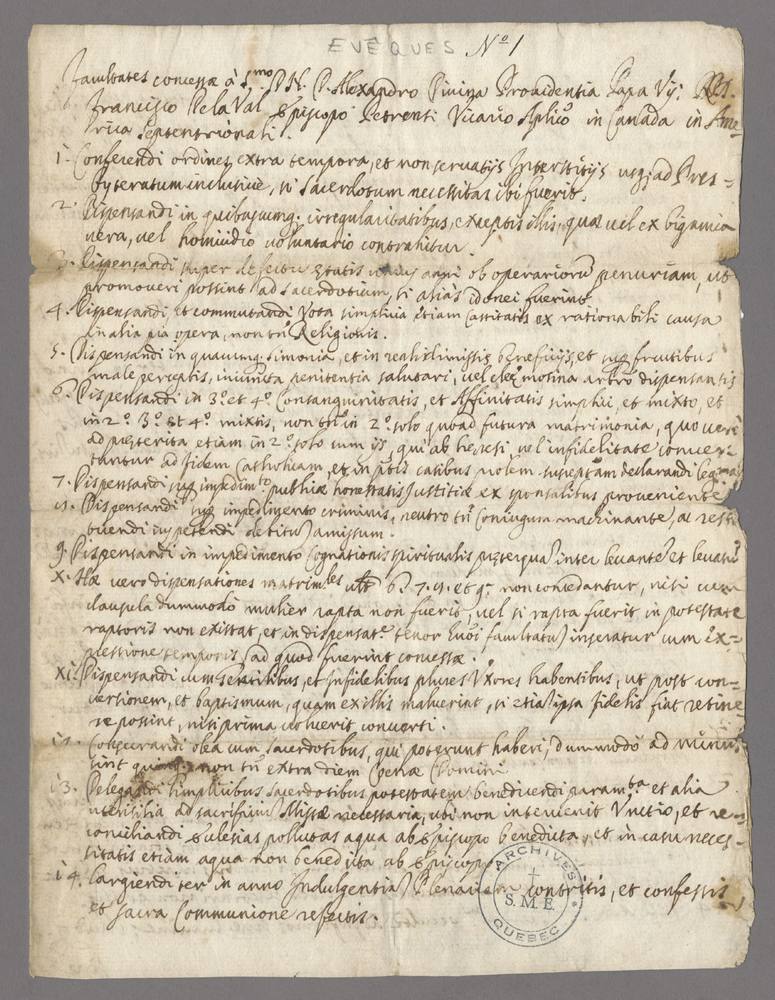 EVÊQUES Nº 1
Facultates concessæ à S.mo D. N. D. Alexandro Divina Providentia Papa Vij: RD.
Francisco De la Val Episcopo Petrensi Vicario Aplico in Canada in Ame
rica Septentrionali.
1. Conferendi ordines extra tempora, et non servatis Interstitijs usq; ad Pres-
byteratum inclusive, si sacerdotum necessitas ibi fuerit.
2. Dispensandi in quibuscumq; irregularitatibus, exceptis illis, quæ vel ex bigamia
vera, vel homicidio voluntario contrahitur.
3. Dispensandi super defectu ætatis unius anni ob operarioru penuriam, ut
promoveri possint ad sacerdotium, si aliàs idonei fuerint.
4. Dispensandi, et commutandi Vota simplicia etiam Castitatis ex rationabili causa
in alia pia opera, non tn Religionis.
5. Dispensandi in quacumq; simonia, et in reali dimissis beneficijs, et sup fructibus
male perceptis, iniuncta penitentia salutari, vel eleemosina arbrô dispensantis
6. Dispensandi in 3º et 4º Consanguinitatis, et Affinitatis simplici, et mixto, et
in 2º 3º et 4º mixtis, non tn in 2º solo quoad futura matrimonia, quo verò
ad præterita etiam in 2º solo cum ijs, qui ab heresi, vel infidelitate conver-
tuntur ad fidem Catholicam, et in pctis casibus prolem susceptam declarandi legmam
7. Dispensandi sup impedimto publicæ honestatis Justitiæ ex sponsalibus proveniente
8. Dispensandi sup impedimento criminis, neutro tn Coniugum machinante, ac resti
tuendi ius petendi debitu amissum.
9. Dispensandi in impedimento Cognationis spiritualis præterqua inter levante et levatu
X. Hæ vero dispensationes matrimles vdt 6. 7. 8. et 9. non concedantur, nisi cum
clausula dummodò mulier rapta non fuerit, vel si rapta fuerit in potestate
raptoris non existat, et in dispensate tenor huiói facultatu inseratur cum ex-
pressione temporis, ad quod fuerint concessæ.
XI. Dispensandi cum Gentilibus, et Infidelibus plures Uxores habentibus, ut post con-
versionem, et baptismum, quam ex illis maluerint, si etia ipsa fidelis fiat retine
re possint, nisi prima voluerit converti.
12. Consecrandi olea cum sacerdotibus, qui poterunt haberi, dummodò ad minus
sint quinq; non tn extra diem Cœnæ Domini
13. Delegandi simplicibus sacerdotibus potestatem benedicendi paramta et alia
utensilia ad sacrificiu Missæ necessaria, ubi non intervenit Unctio, et re-
conciliandi Ecclesias pollutas aqua ab Episcopo benedicta, et in casu neces-
sitatis etiam aqua non benedicta ab Episcopo
14. Largiendi ter in anno Indulgentia Plenariam contritis, et confessis
et sacra Communione refectis.
ARCHIVES
S.M.E.
QUÉBEC